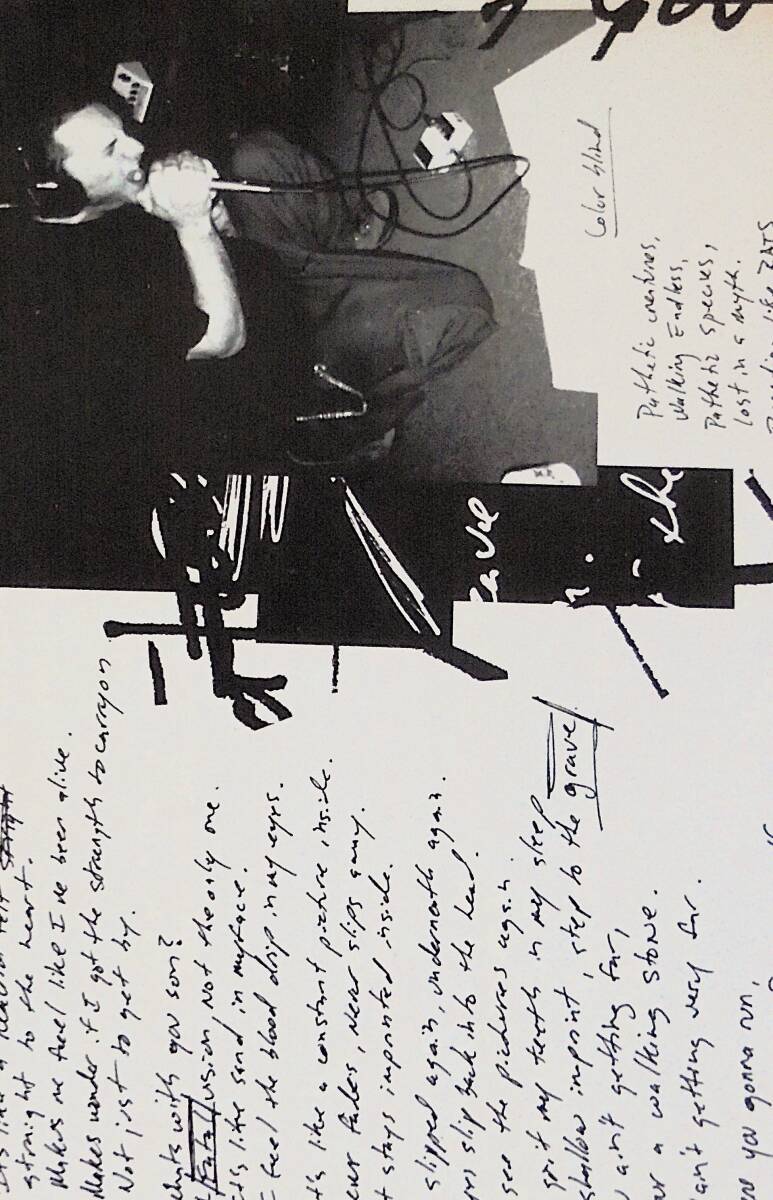 Color blind
Pathetic creatures,
walking Endless,
Pathetic species,
lost in a myth.
like RATS
straight to the heart.
Makes me feel like I've been alive.
Makes wonder if I got the strength to carry on
Not just to get by.
whats with you son?
Fatal vision, Not the only one.
it's like sand in my face.
I feel the blood drip in my eyes.
it's like a constant picture inside.
ever fades, Never slips away.
t stays imprinted inside.
slipped again, underneath again.
slip back into the head.
see the pictures again.
grit my teeth in my sleep
shallow imprint, step to the grave
ain't getting far,
or a walking stone.
an't getting very far.
you gonna run,
the